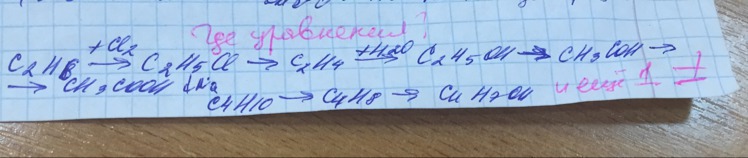 Где уравнения?
C2H6 +Cl2 → C2H5Cl → C2H4 +H2O → C2H5OH → CH3COH →
→ CH3COOH
C4H10 → C4H8 → C4H7OH и ещё 1 1